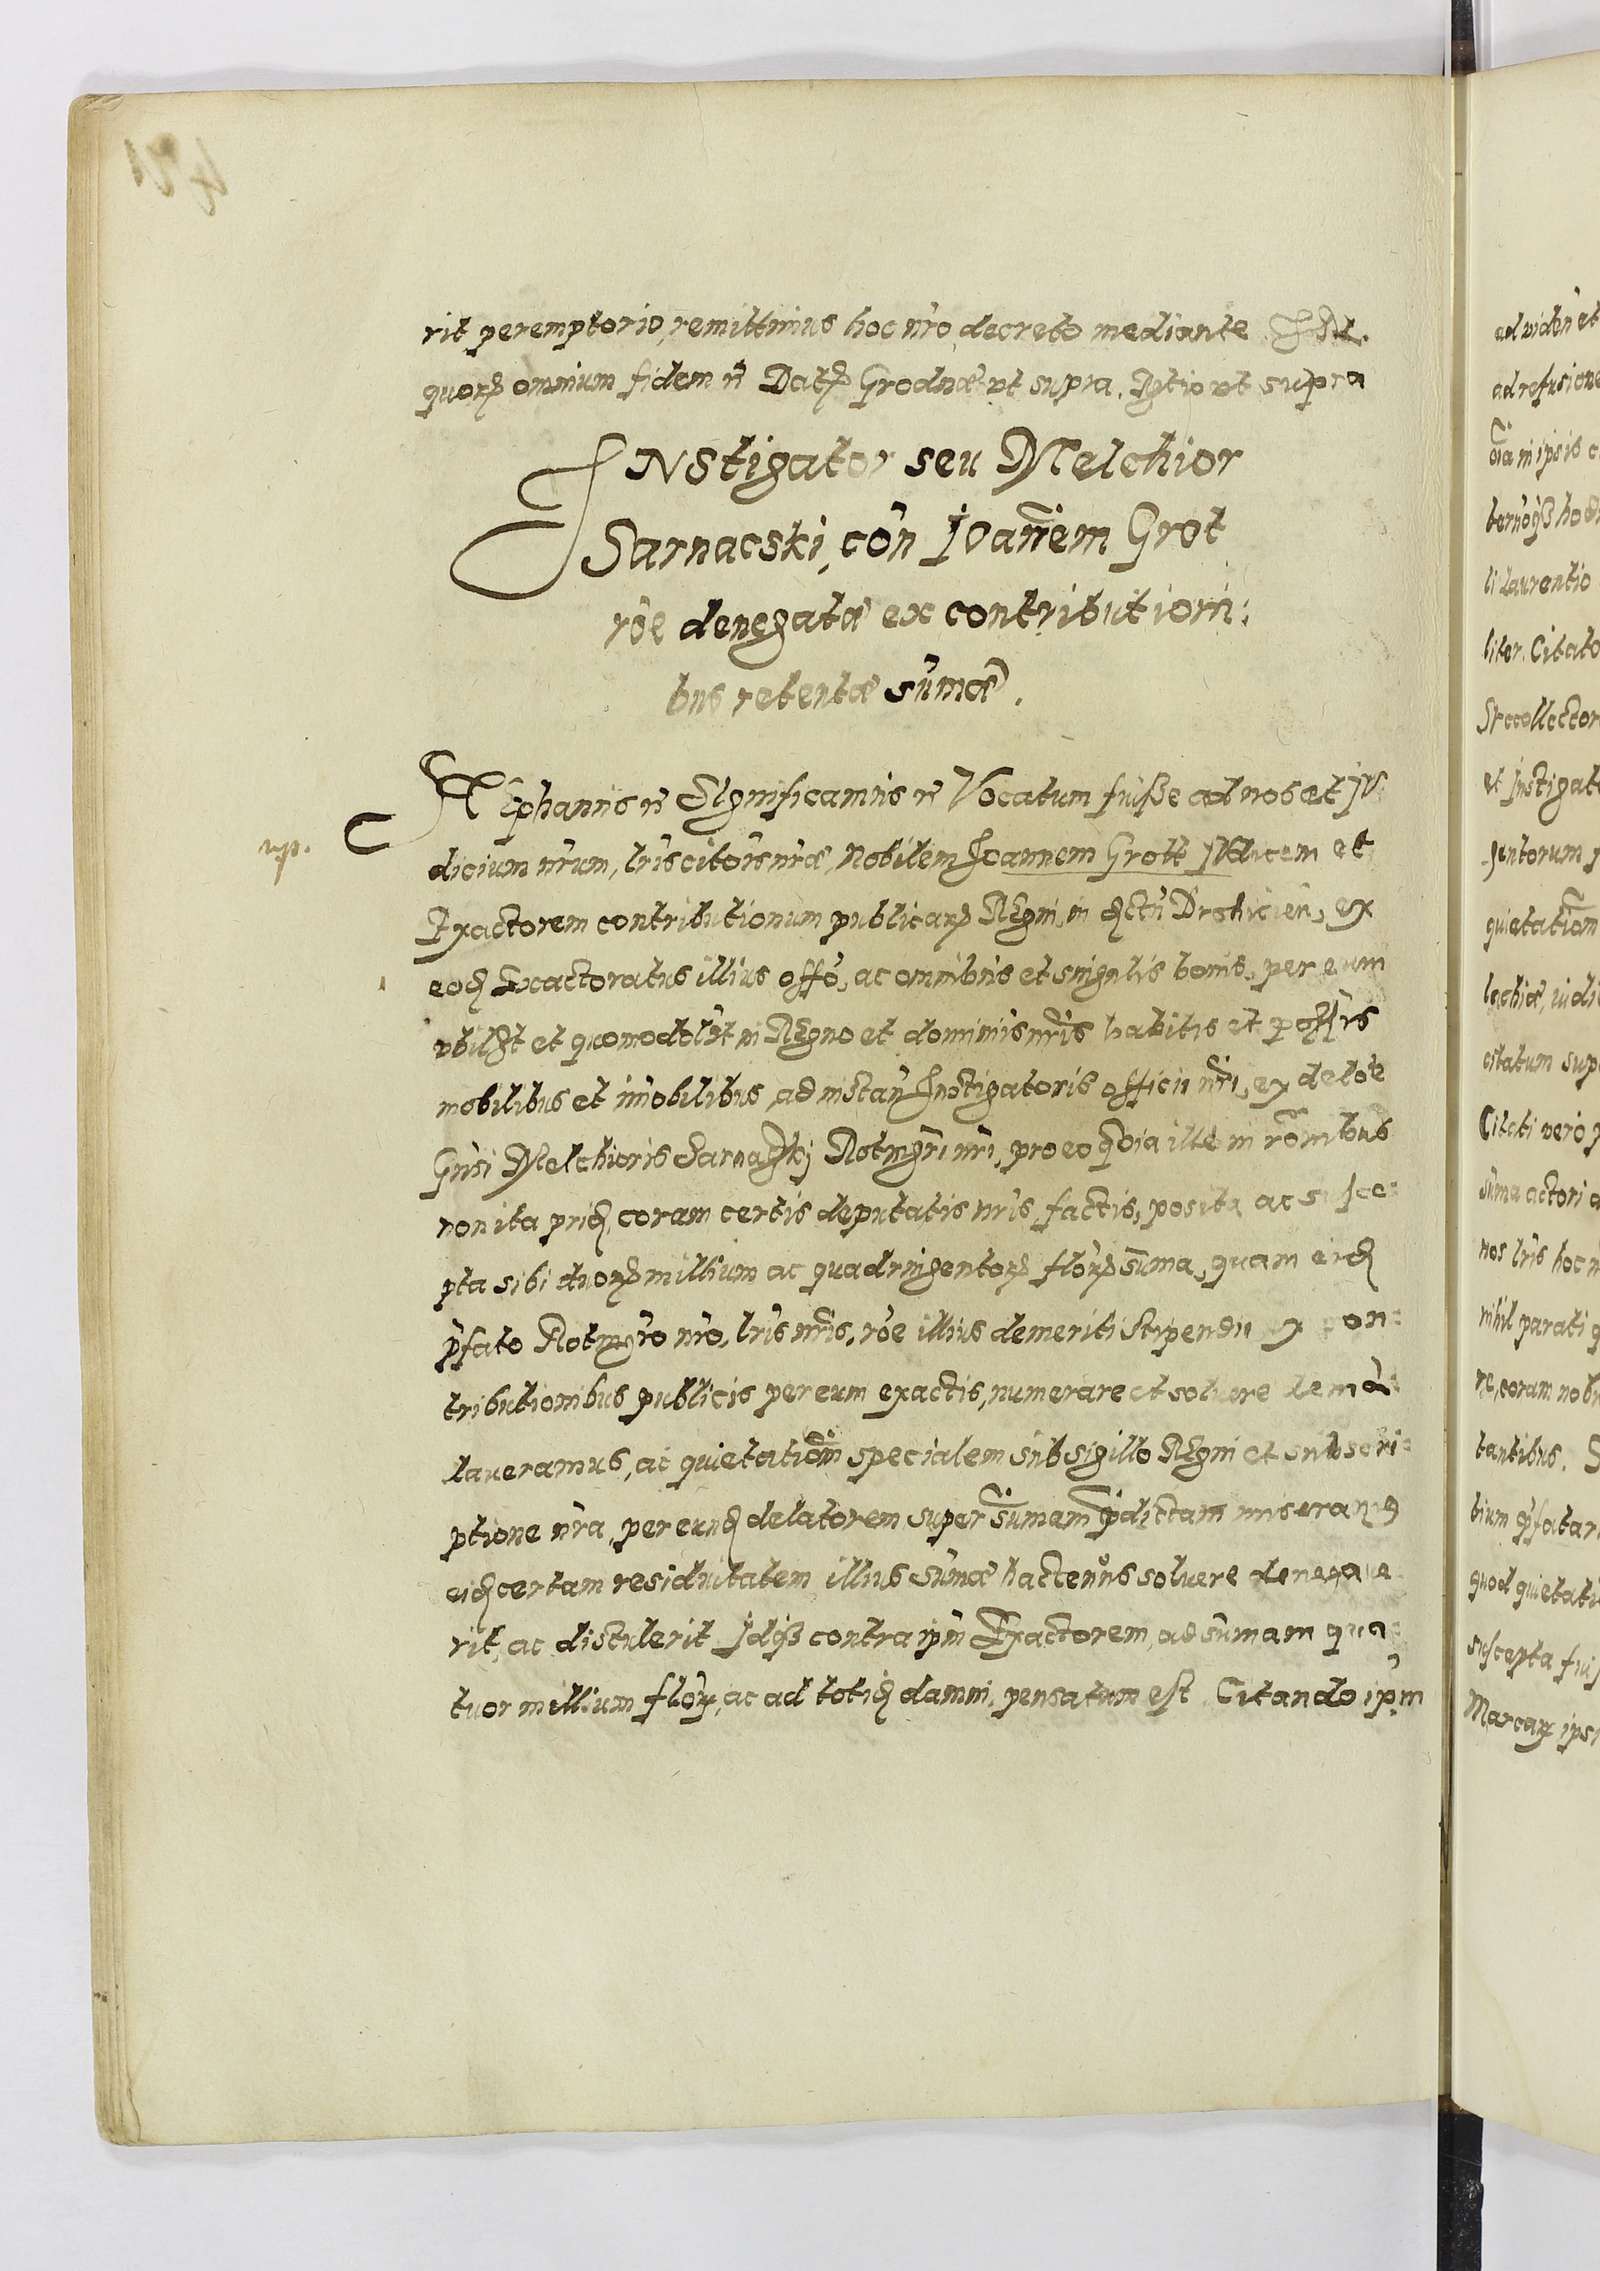 rit peremptorio, remittimus hoc nro decreto mediante
quorꝫ omnium fidem rc Datꝫ Grodnæ ut supra. Rltio ut supra
INstigator seu Melchior
Sarnacski, con Joannem Grot
roe denegatæ ex contributioni:
bus retentæ sumæ.
STEphanus rc Significamus rc Vocatum fuisse ad nos et Ju
np.
dicium nrum, lris citoris nræ, Nobilem Joannem Grott Judicem et
Exactorem contributionum publicarꝫ Regni, in Drohicien, ex
eod Exactoratus illius offo, ac omnibus et singulis bonis, per eum
ubilibet et quomodolibet in Regno et dominijs nris habitis et possis
mobilibus et immobilibus, ad instan Instigatoris officii nri, ex deloe
Gnsi Melchioris Rotmgri nri, pro eo ille in
non ita prid, coram certis deputatis nris factis, posita ac susce:
pta sibi duorꝫ millium ac quadringentorꝫ florꝫ suma, quam eid
pfato Rotmgro nro, lris nris, roe illius demeriti stipendii ex con:
tributionibus publicis per eum exactis, numerare et soluere demā:
daueramus, ac quietationem specialem sub sigillo Regni et subscri:
ptione nra, per eund delatorem super sumam pdictam miseramus
eid certam residuitatem illius sumæ hactenus soluere denegaue
rit, ac distulerit Idqꝫ contra ipm Exactorem, ad sumam qua:
tuor millium flor, ac ad totid damni, pensatum est. Citando ipm
ad refusione
li laurentio
liter. Citato
et Instigato
quietatiom
estatum sup
Citati vero p
suma actori a
nos lris hoc n
nihil parati q
re, coram nobi
tantibus. S
quod quietati
suscepta fuis
Marcarꝫ ipsi